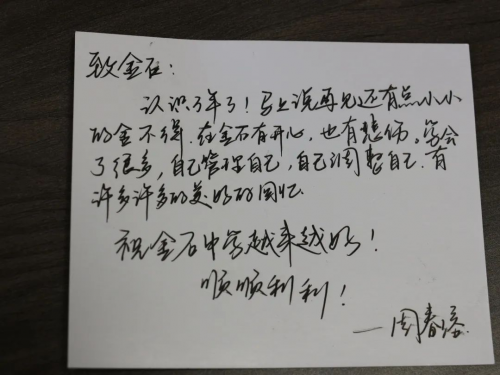 致金石：
认识3年了！马上说再见还有点小小
的舍不得．在金石有开心，也有悲伤。学会
了很多，自己管理自己，自己调整自己．有
许多许多的美好的回忆．
祝金石中学越来越好！
顺顺利利！
—周春